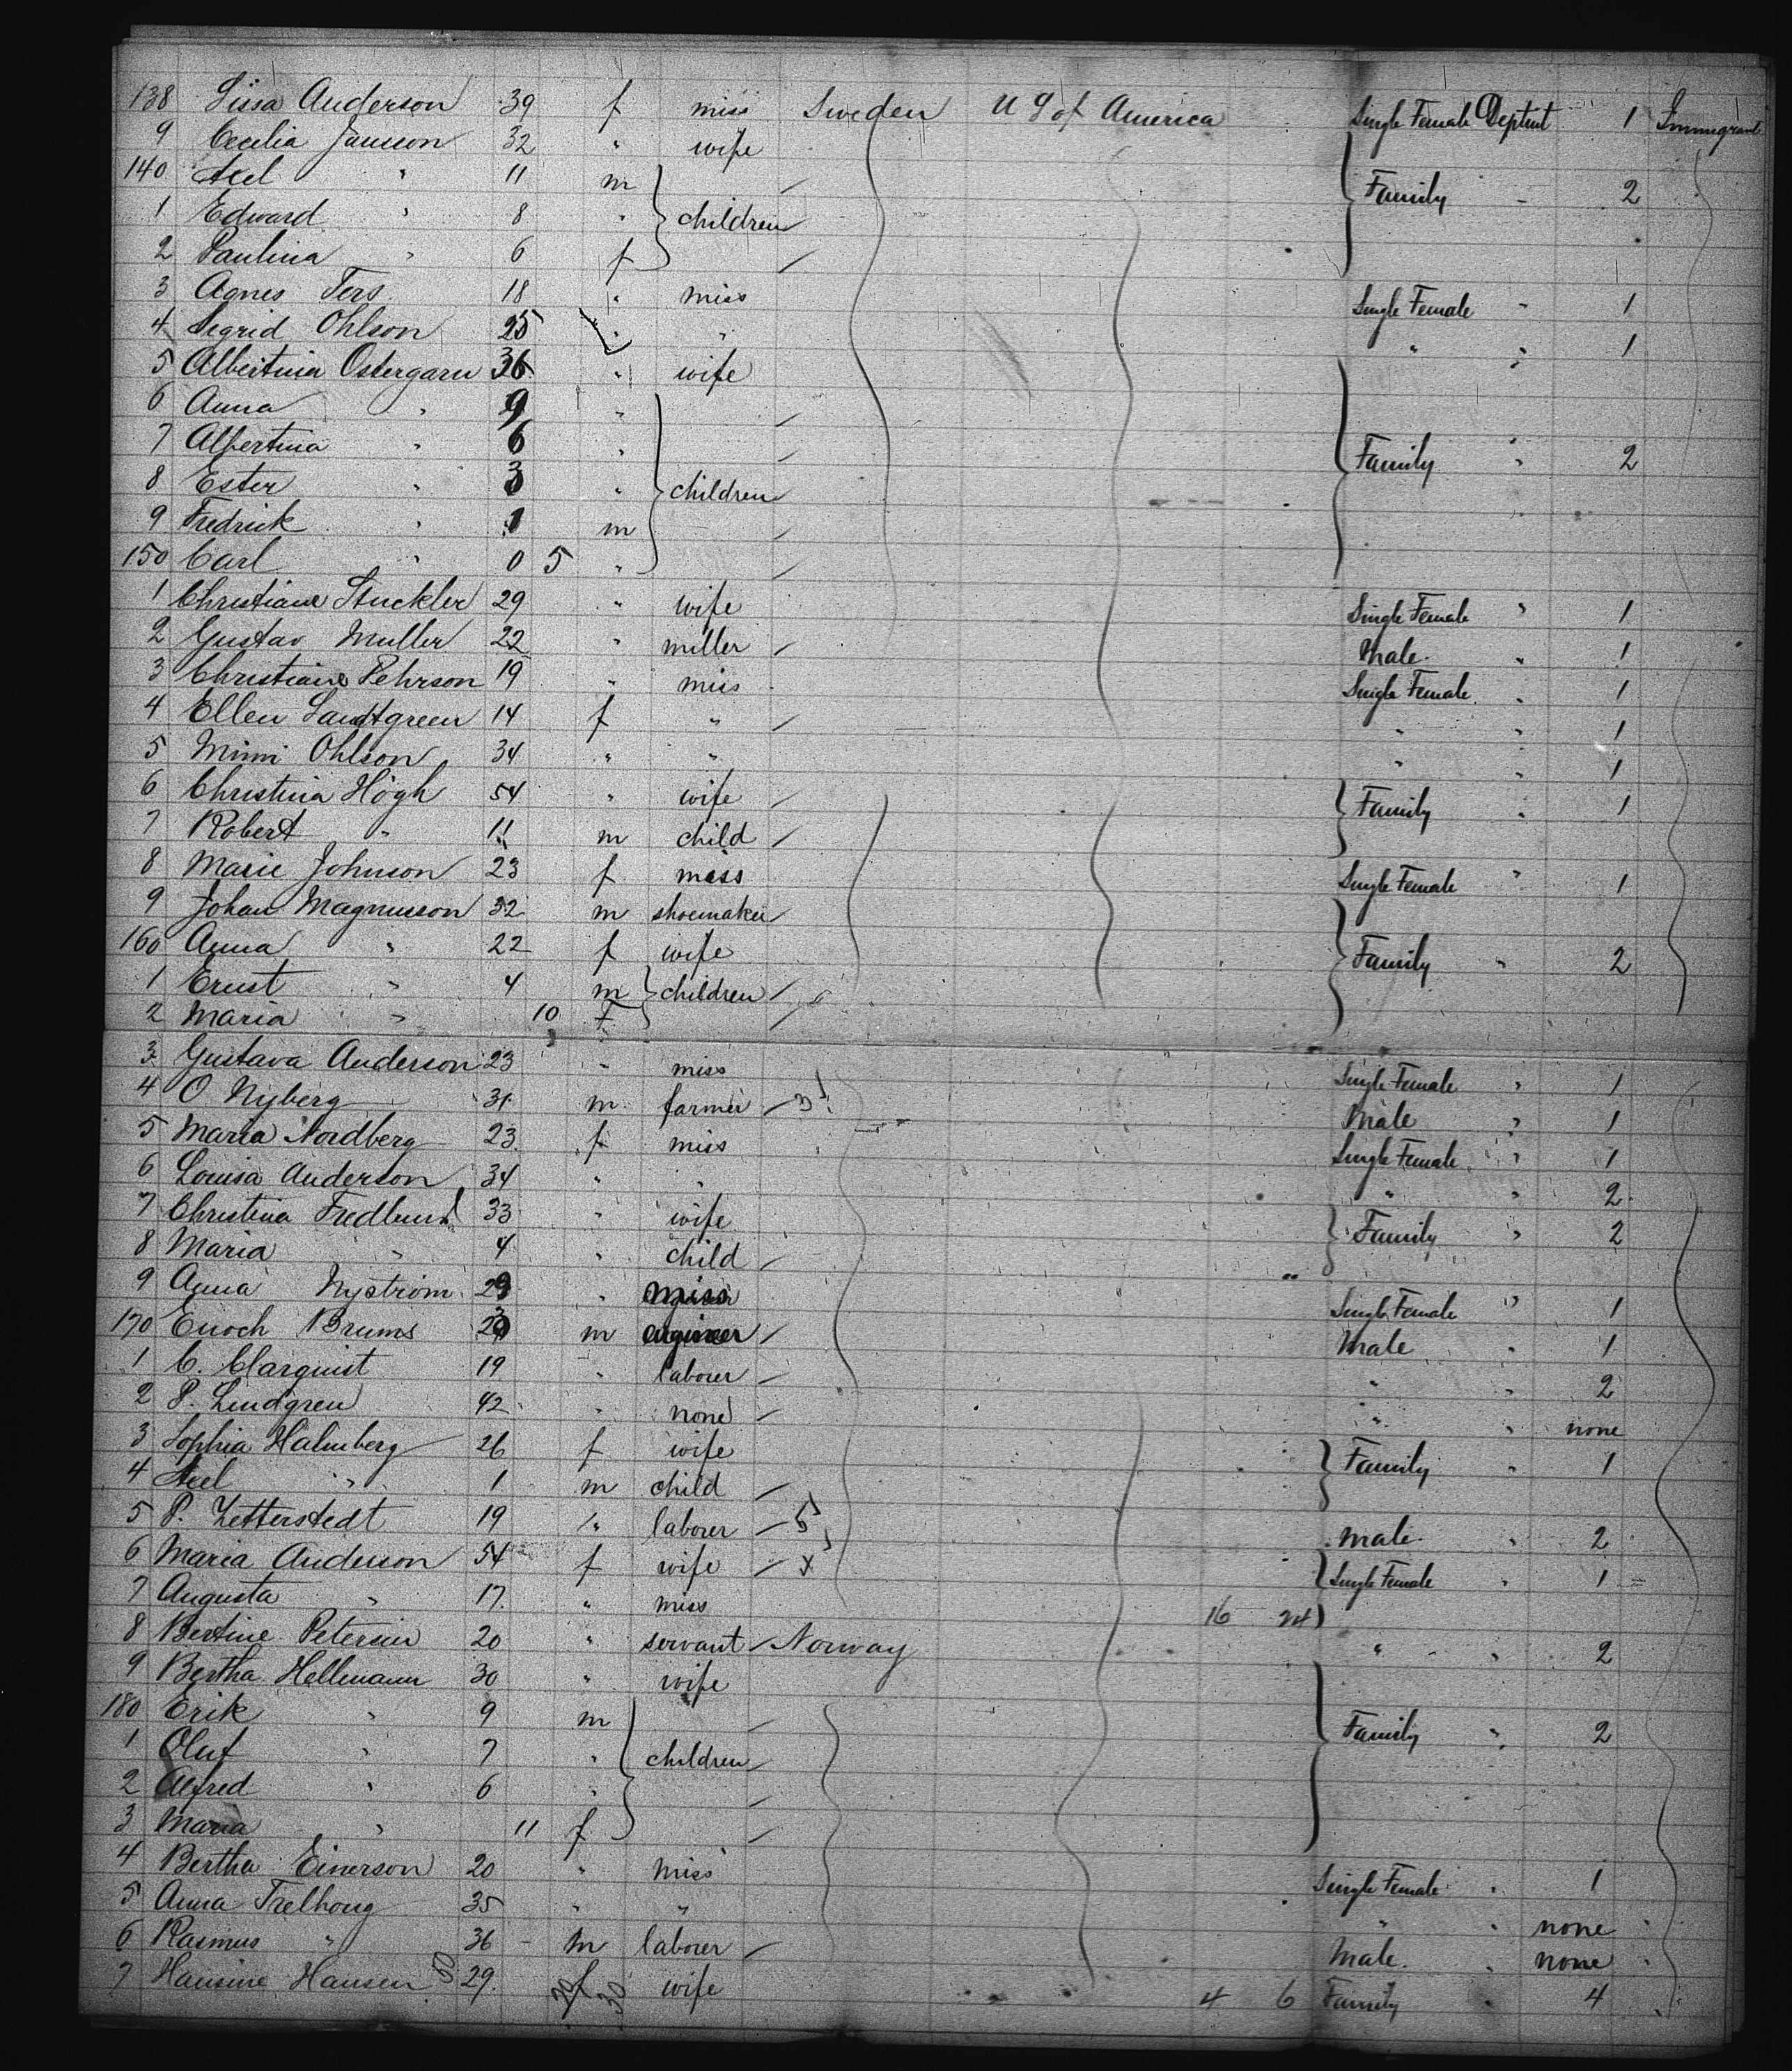 138 Lissa Anderson 39 f miss Sweden U S of America Single Female Deptmt 1 Immigrant
9 Cecilia Jansson 32 " wife
140 Axel " 11 m Family " 2
1 Edward " 8 " children
2 Paulina " 6 f
3 Agnes Fers 18 " miss Single Female " 1
4 Sigrid Ohlson 25 " " " " 1
5 Albertina Ostergaru 36 " wife
6 Anna " 9 "
7 Albertina " 6 " Family " 2
8 Ester " 3 " children
9 Fredrick " 1 m
150 Carl " 0 5 "
1 Christiane Stuckler 29 " wife Single Female " 1
2 Gustav Muller 22 " miller Male " 1
3 Christiane Pehrson 19 " miss Single Female " 1
4 Ellen Landtgreen 14 f " " " 1
5 Mimi Ohlson 34 " " " " 1
6 Christina Högh 54 " wife Family " 1
7 Robert " 11 m child
8 Marie Johnson 23 f miss Single Female " 1
9 Johan Magnusson 32 m shoemaker
160 Anna " 22 f wife Family " 2
1 Ernst " 4 m children
2 Maria " 10 f
3 Gustava Anderson 23 " miss Single Female " 1
4 O Nyberg 31 m farmer Male " 1
5 Maria Nordberg 23 f miss Single Female " 1
6 Louisa Anderson 34 " " " " 2
7 Christina Fredlund 33 " wife Family " 2
8 Maria " 4 " child
9 Anna Nystrom 29 " miss Single Female " 1
170 Enoch Brums m engineer Male " 1
1 C. Clarquist 19 " laborer " " 2
2 P. Lindgren 42 " none " " none
3 Sophia Halmberg 26 f wife Family " 1
4 Axel " 1 m child
5 P. Zetterstedt 19 " laborer 5 Male " 2
6 Maria Anderson 54 f wife x Single Female " 1
7 Augusta " 17 " miss 16 24
8 Bertine Petersen 20 " servant Norway " " 2
9 Bertha Hellmann 30 " wife
180 Erik " 9 m Family " 2
1 Oluf " 7 " children
2 Alfred " 6 "
3 Maria " 11 f
4 Bertha Einerson 20 " miss Single Female " 1
5 Anna Trelhoug 35 " " " " none
6 Rasmus " 36 m laborer Male " none
7 Hansine Hansen 29 f 30 wife 4 6 Family " 4